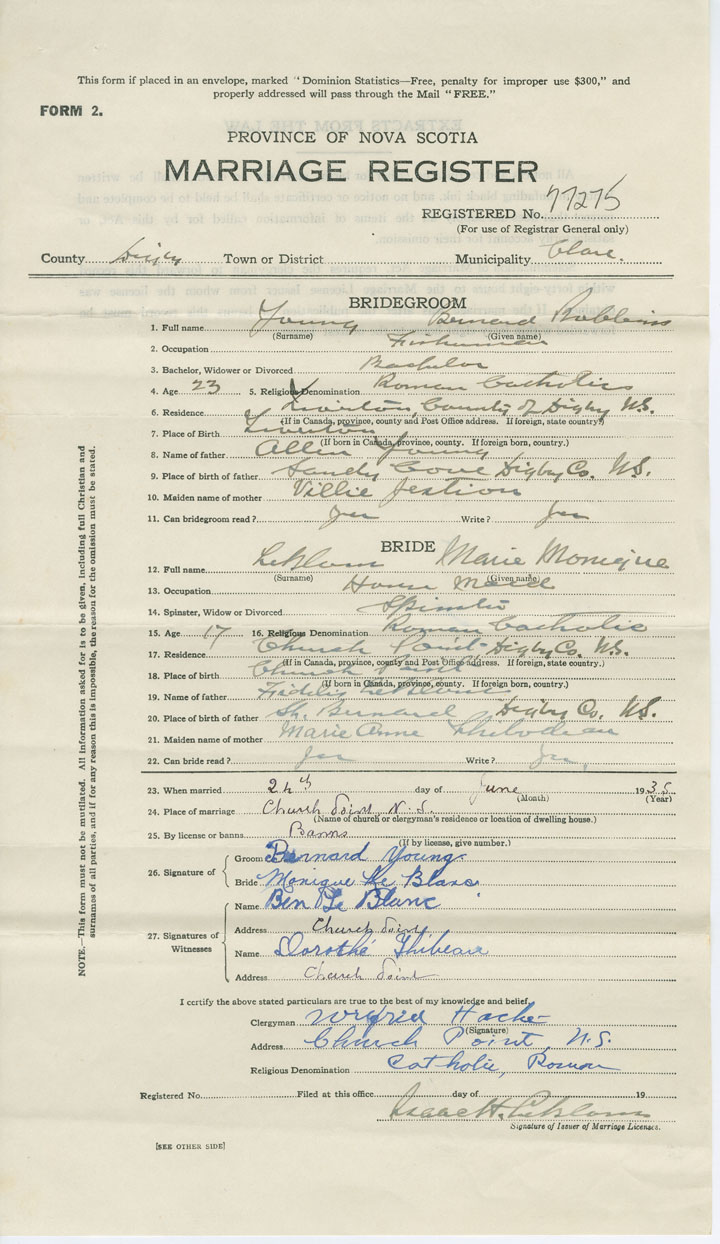 This form if placed in an envelope, marked "Dominion Statistics—Free, penalty for improper use $300," and
properly addressed will pass through the Mail "FREE."
FORM 2.
PROVINCE OF NOVA SCOTIA
MARRIAGE REGISTER
REGISTERED No. 77275
(For use of Registrar General only)
County Digby Town or District Municipality Clare.
BRIDEGROOM
1. Full name Young Bernard Robbins
(Surname) (Given name)
2. Occupation Fisherman
3. Bachelor, Widower or Divorced Bachelor
4. Age 23 5. Religious Denomination Roman Catholic
6. Residence Tiverton, County of Digby N.S.
(If in Canada, province, county and Post Office address. If foreign, state country)
7. Place of Birth Tiverton
(If born in Canada, province, county. If foreign born, country.)
8. Name of father Allen Young
9. Place of birth of father Sandy Cove Digby Co. N.S.
10. Maiden name of mother
11. Can bridegroom read? Yes Write? Yes
BRIDE
12. Full name LeBlanc Marie Monique
(Surname) (Given name)
13. Occupation House Maid
14. Spinster, Widow or Divorced Spinster
15. Age 17 16. Religious Denomination Roman Catholic
17. Residence Church Point Digby Co. N.S.
(If in Canada, province, county and Post Office address. If foreign, state country.)
18. Place of birth Church Point
(If born in Canada, province, county. If foreign born, country.)
19. Name of father LeBlanc
20. Place of birth of father St. Bernard Digby Co. N.S.
21. Maiden name of mother Marie Anne Thibodeau
22. Can bride read? Yes Write? Yes
23. When married 24th day of June 1935
(Month) (Year)
24. Place of marriage Church Point N.S.
(Name of church or clergyman's residence or location of dwelling house.)
25. By license or banns Banns
(If by license, give number.)
26. Signature of
Groom Bernard Young
Bride Monique Le Blanc
27. Signatures of Witnesses
Name Ben Le Blanc
Address Church Point
Name Dorothé Thibeau
Address Church Point
I certify the above stated particulars are true to the best of my knowledge and belief.
Clergyman Wilfrid Hache
(Signature)
Address Church Point, N.S.
Religious Denomination Catholic, Roman
Registered No. Filed at this office day of 19
Isaac H. LeBlanc
Signature of Issuer of Marriage Licenses.
[SEE OTHER SIDE]
NOTE.—This form must not be mutilated. All information asked for is to be given, including full Christian and
surnames of all parties, and if for any reason this is impossible, the reason for the omission must be stated.